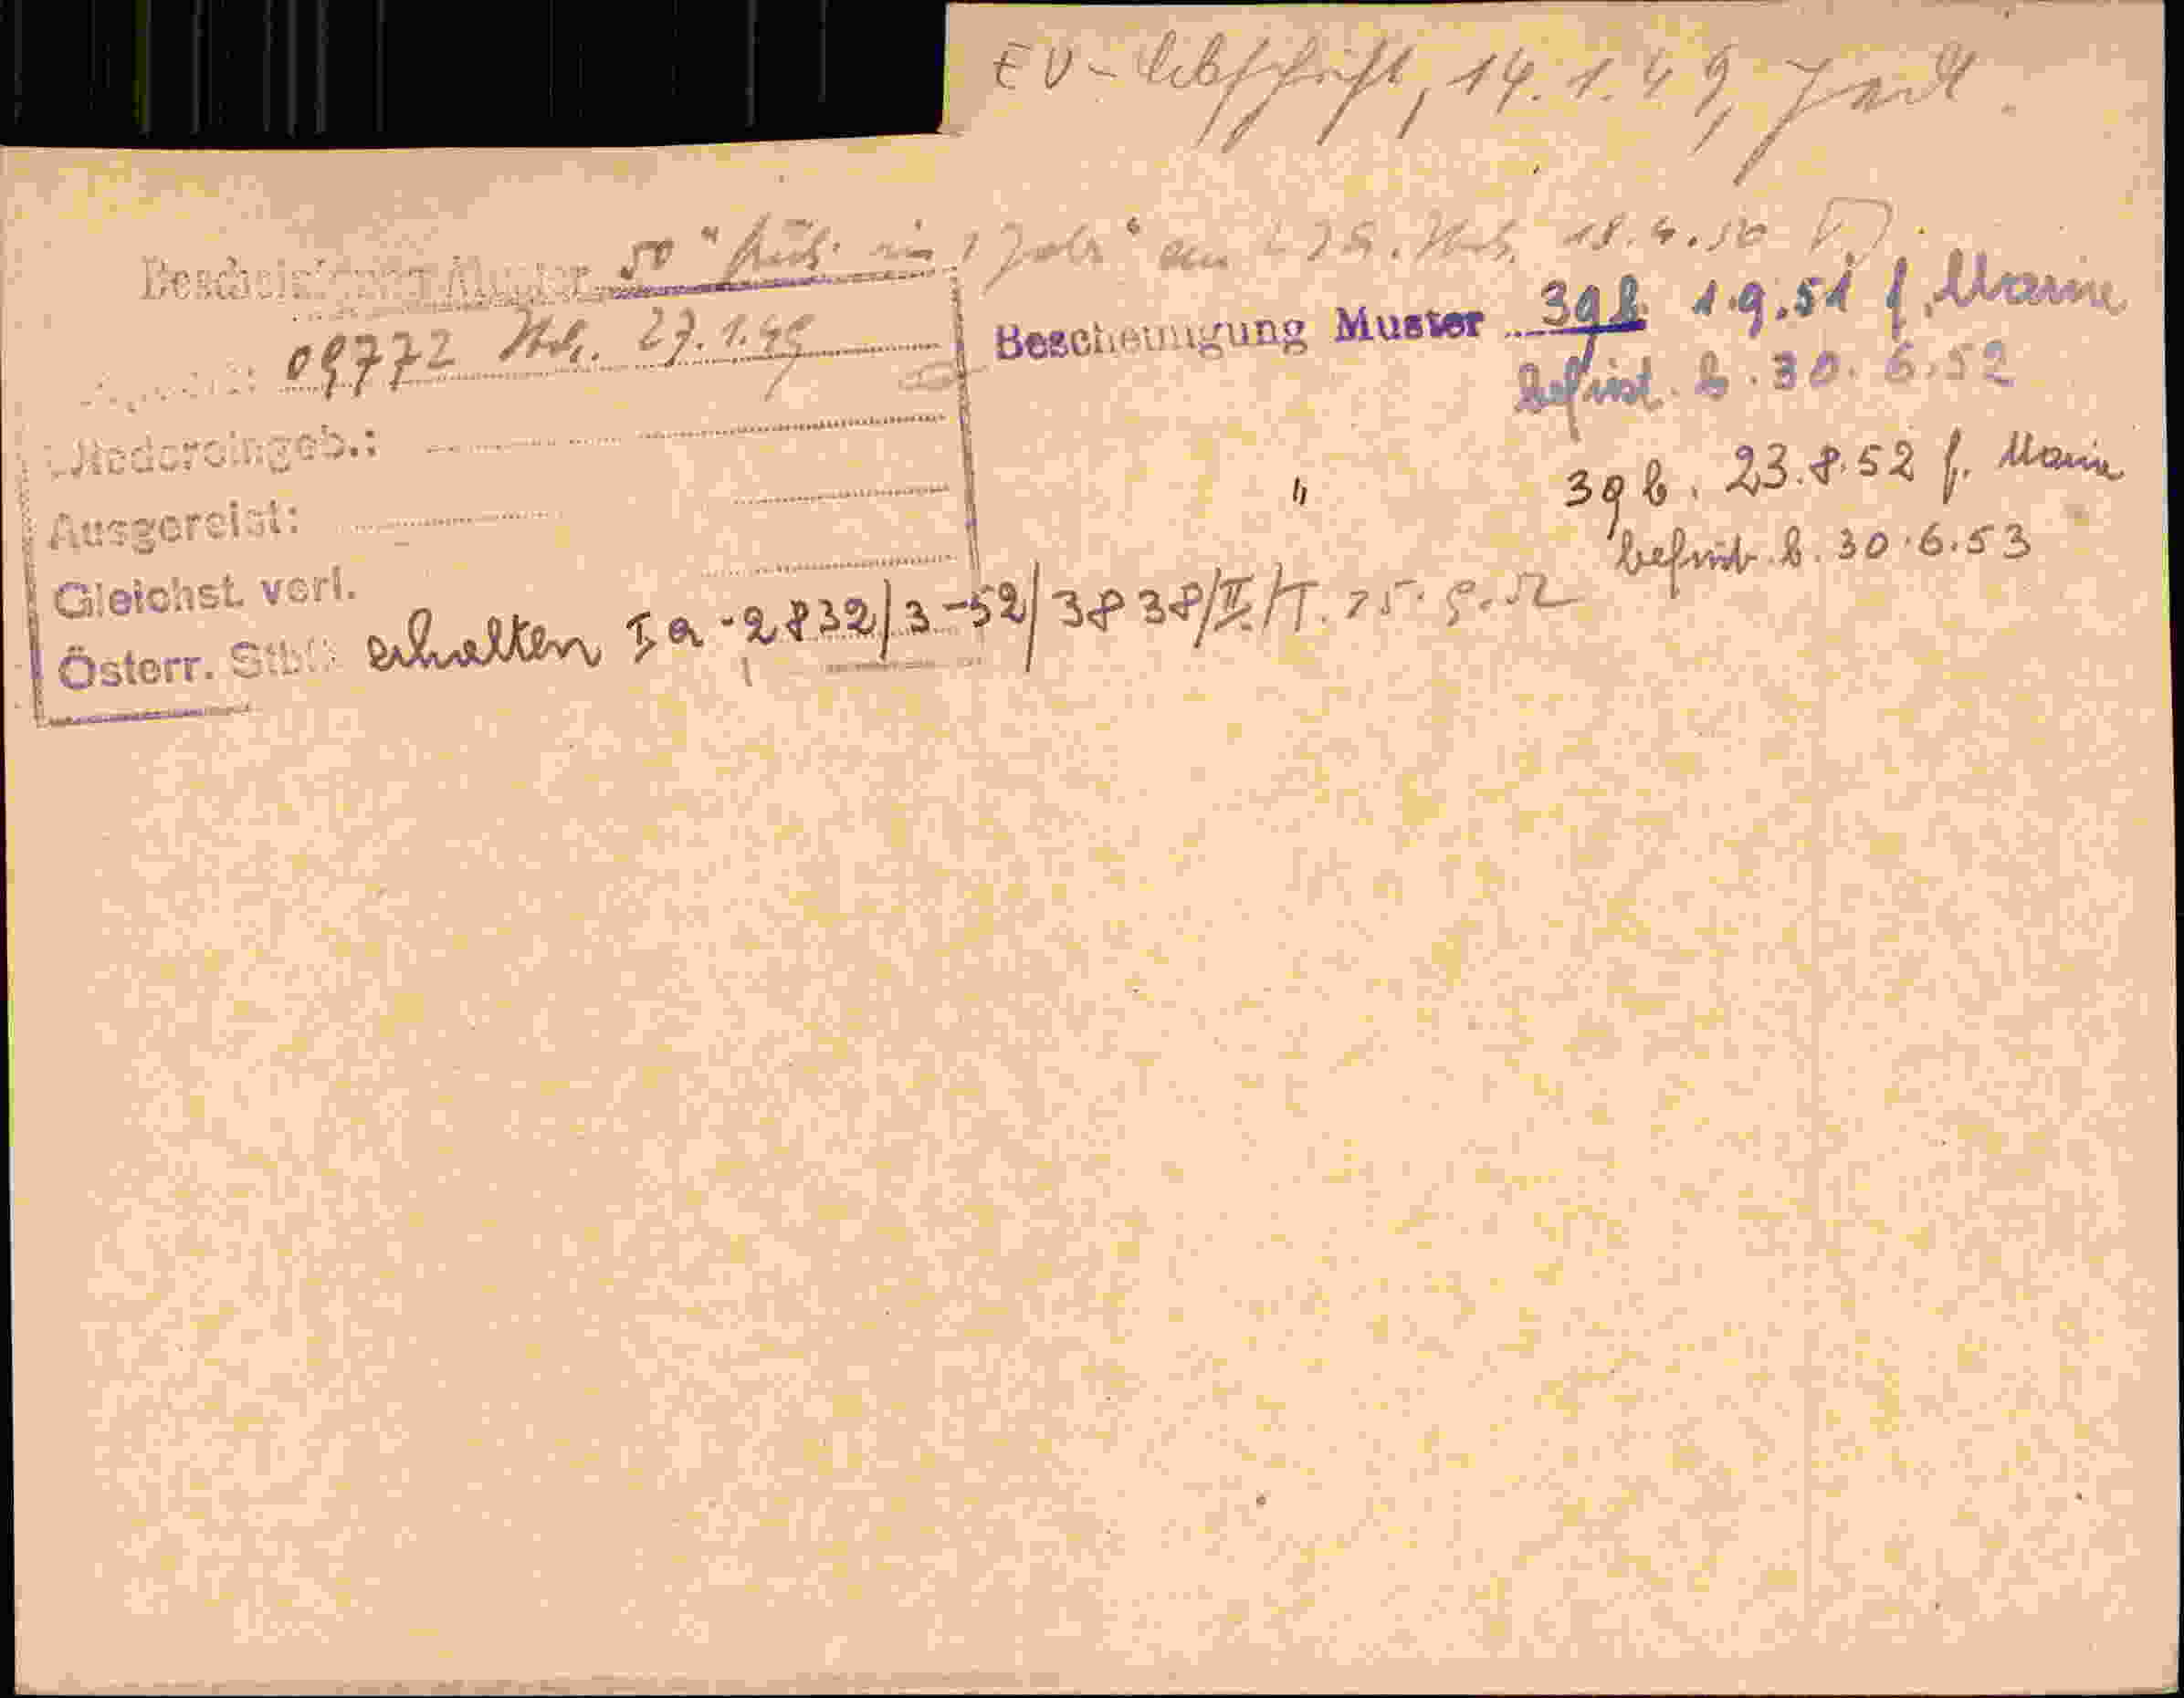 EV-Abschrift, 14.1.49,
Bescheinigung Muster 50 " 1 Jahr " 18.4.50
09772 27.1.49
Wiedereingeb.:
Ausgereist:
Gleichst. verl.
Österr. Stb. erhalten Ia-2832/3-52/3838/II/T. 25.9.52
Bescheinigung Muster 39b 1.9.51 f. Marie
befrist. b. 30.6.52
" 39b. 23.8.52 f. Marie
befrist. b. 30.6.53